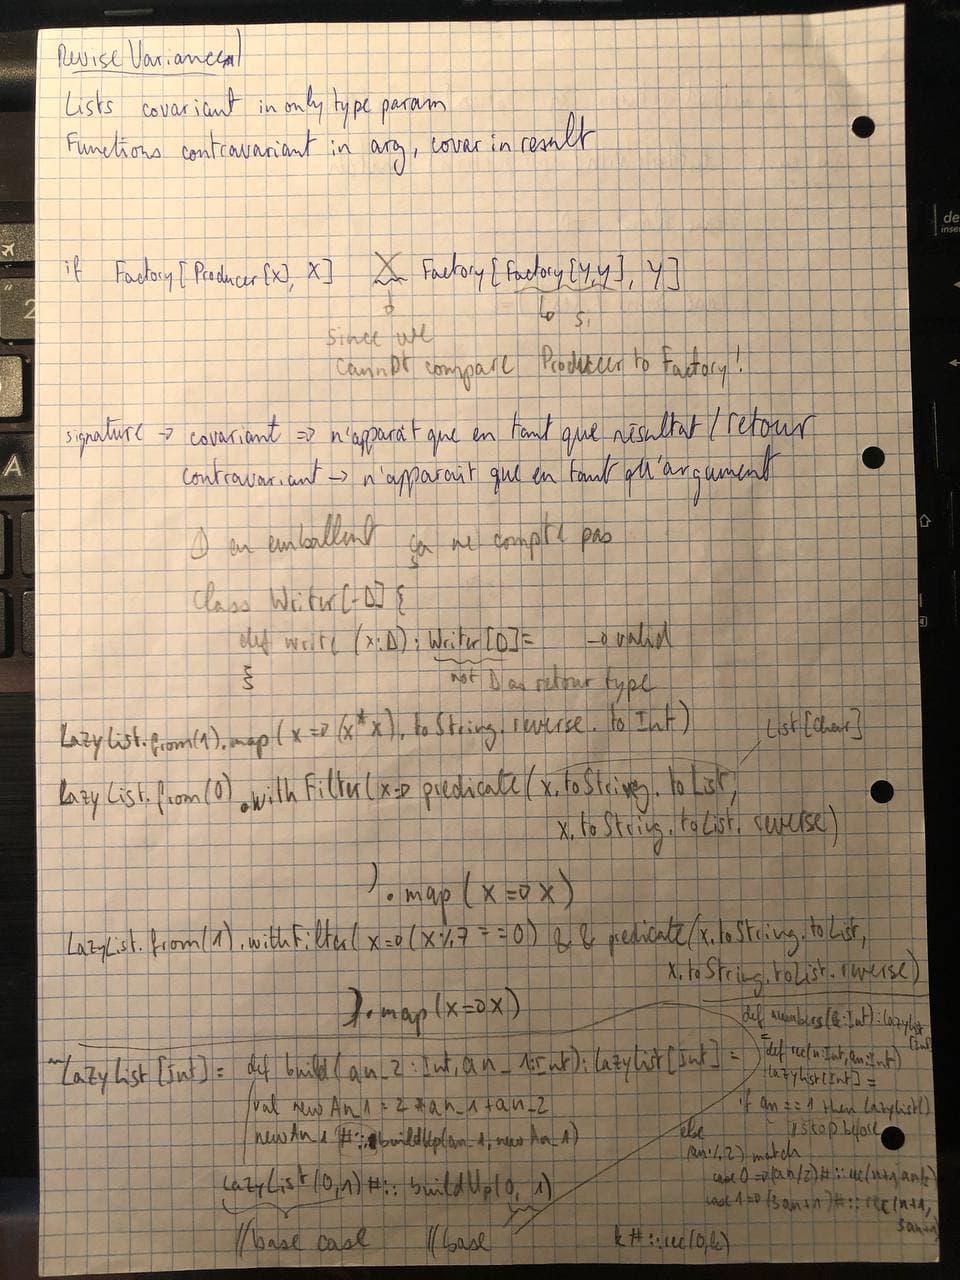 Revise Variances!
Lists covariant in only type param
Functions contravariant in arg, covar in result
if Factory[Producer[X], X] X Factory[Factory[Y,Y], Y]
since we
cannot compare Producer to Factory!
signature → covariant => n'apparait que en tant que résultat / retour
contravariant → n'apparait que en tant qu'argument
D en emballent ça ne compte pas
Class Writer[-D] {
def write (x:D): Writer[D]= → valid
}
not D as retour type
LazyList.from(1).map(x => (x*x).toString.reverse.toInt)
List[Char]
LazyList.from(0).withFilter(x => predicate(x.toString.toList,
x.toString.toList.reverse)
).map(x => x)
LazyList.from(1).withFilter(x => (x%7 == 0) && predicate(x.toString.toList,
x.toString.toList.reverse)
).map(x => x)
LazyList[Int] = def build(an_2: Int, an_1: Int): LazyList[Int] =
val newAn_1 = 2*an_1+an_2
newAn_1 #:: buildUp(an_1, newAn_1)
LazyList(0,1) #:: buildUp(0, 1)
//base case //base
def numbers(k:Int): LazyList
[Int]
=
def rec(n:Int, an:Int)
LazyList[Int] =
if an == 1 then LazyList()
//stop before
else
(an%2) match
case 0 => (an/2) #:: rec(n+1,
case 1 => (3an+1) #:: rec(n+1,
3an+1)
k #:: rec(0,k)